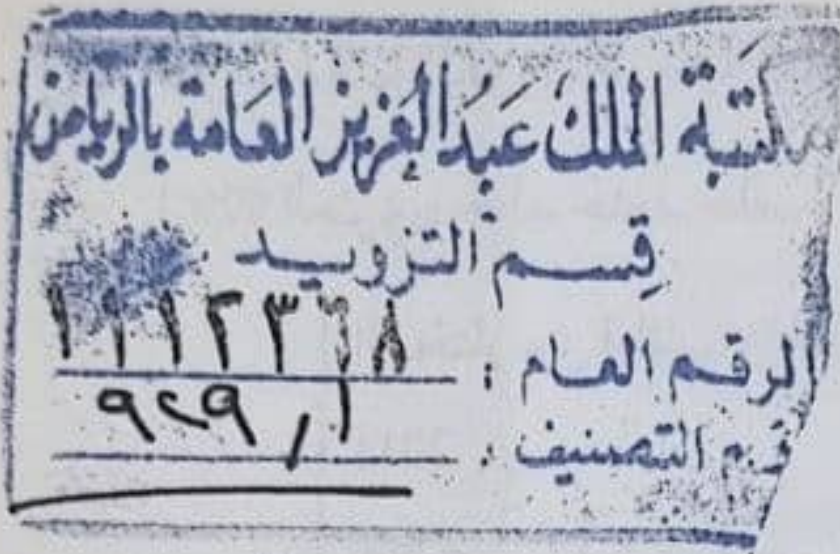 مكتبة الملك عبد العزيز العامة بالرياض
قسم التزويد
الرقم العام : ١١١٢٣٦٨
رقم التصنيف : ٩٢٩,١